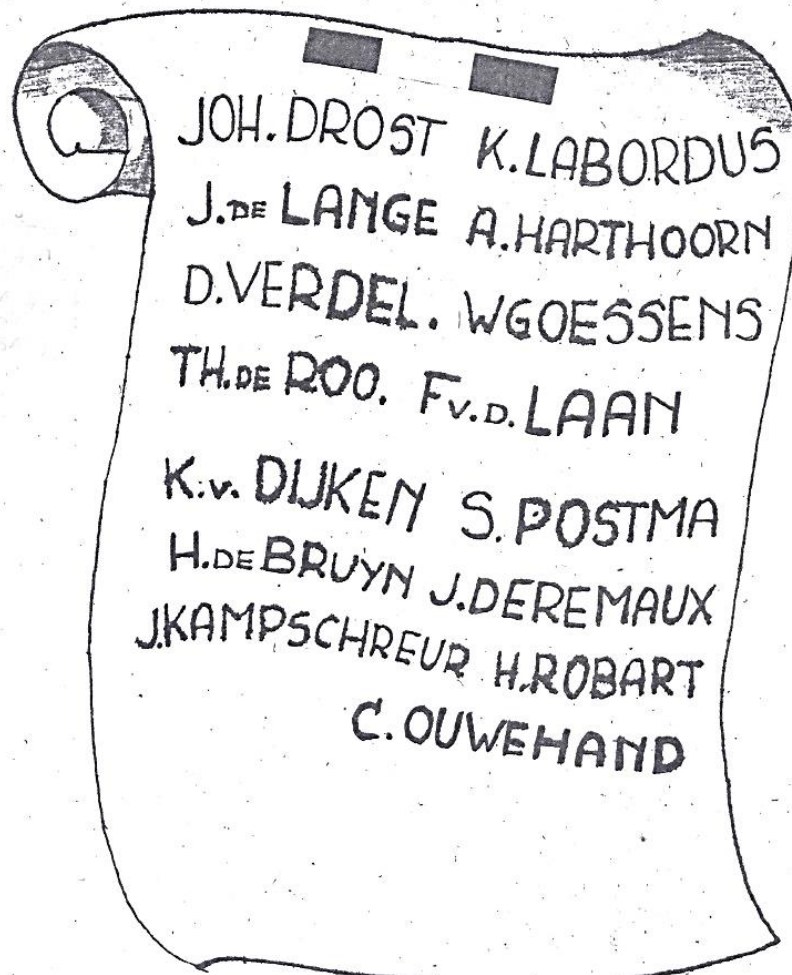 JOH. DROST K. LABORDUS
J. DE LANGE A. HARTHOORN
D. VERDEL. WGOESSENS
TH. DE ROO. F v. D. LAAN
K. v. DIJKEN S. POSTMA
H. DE BRUYN J. DEREMAUX
J. KAMPSCHREUR H. ROBART
C. OUWEHAND